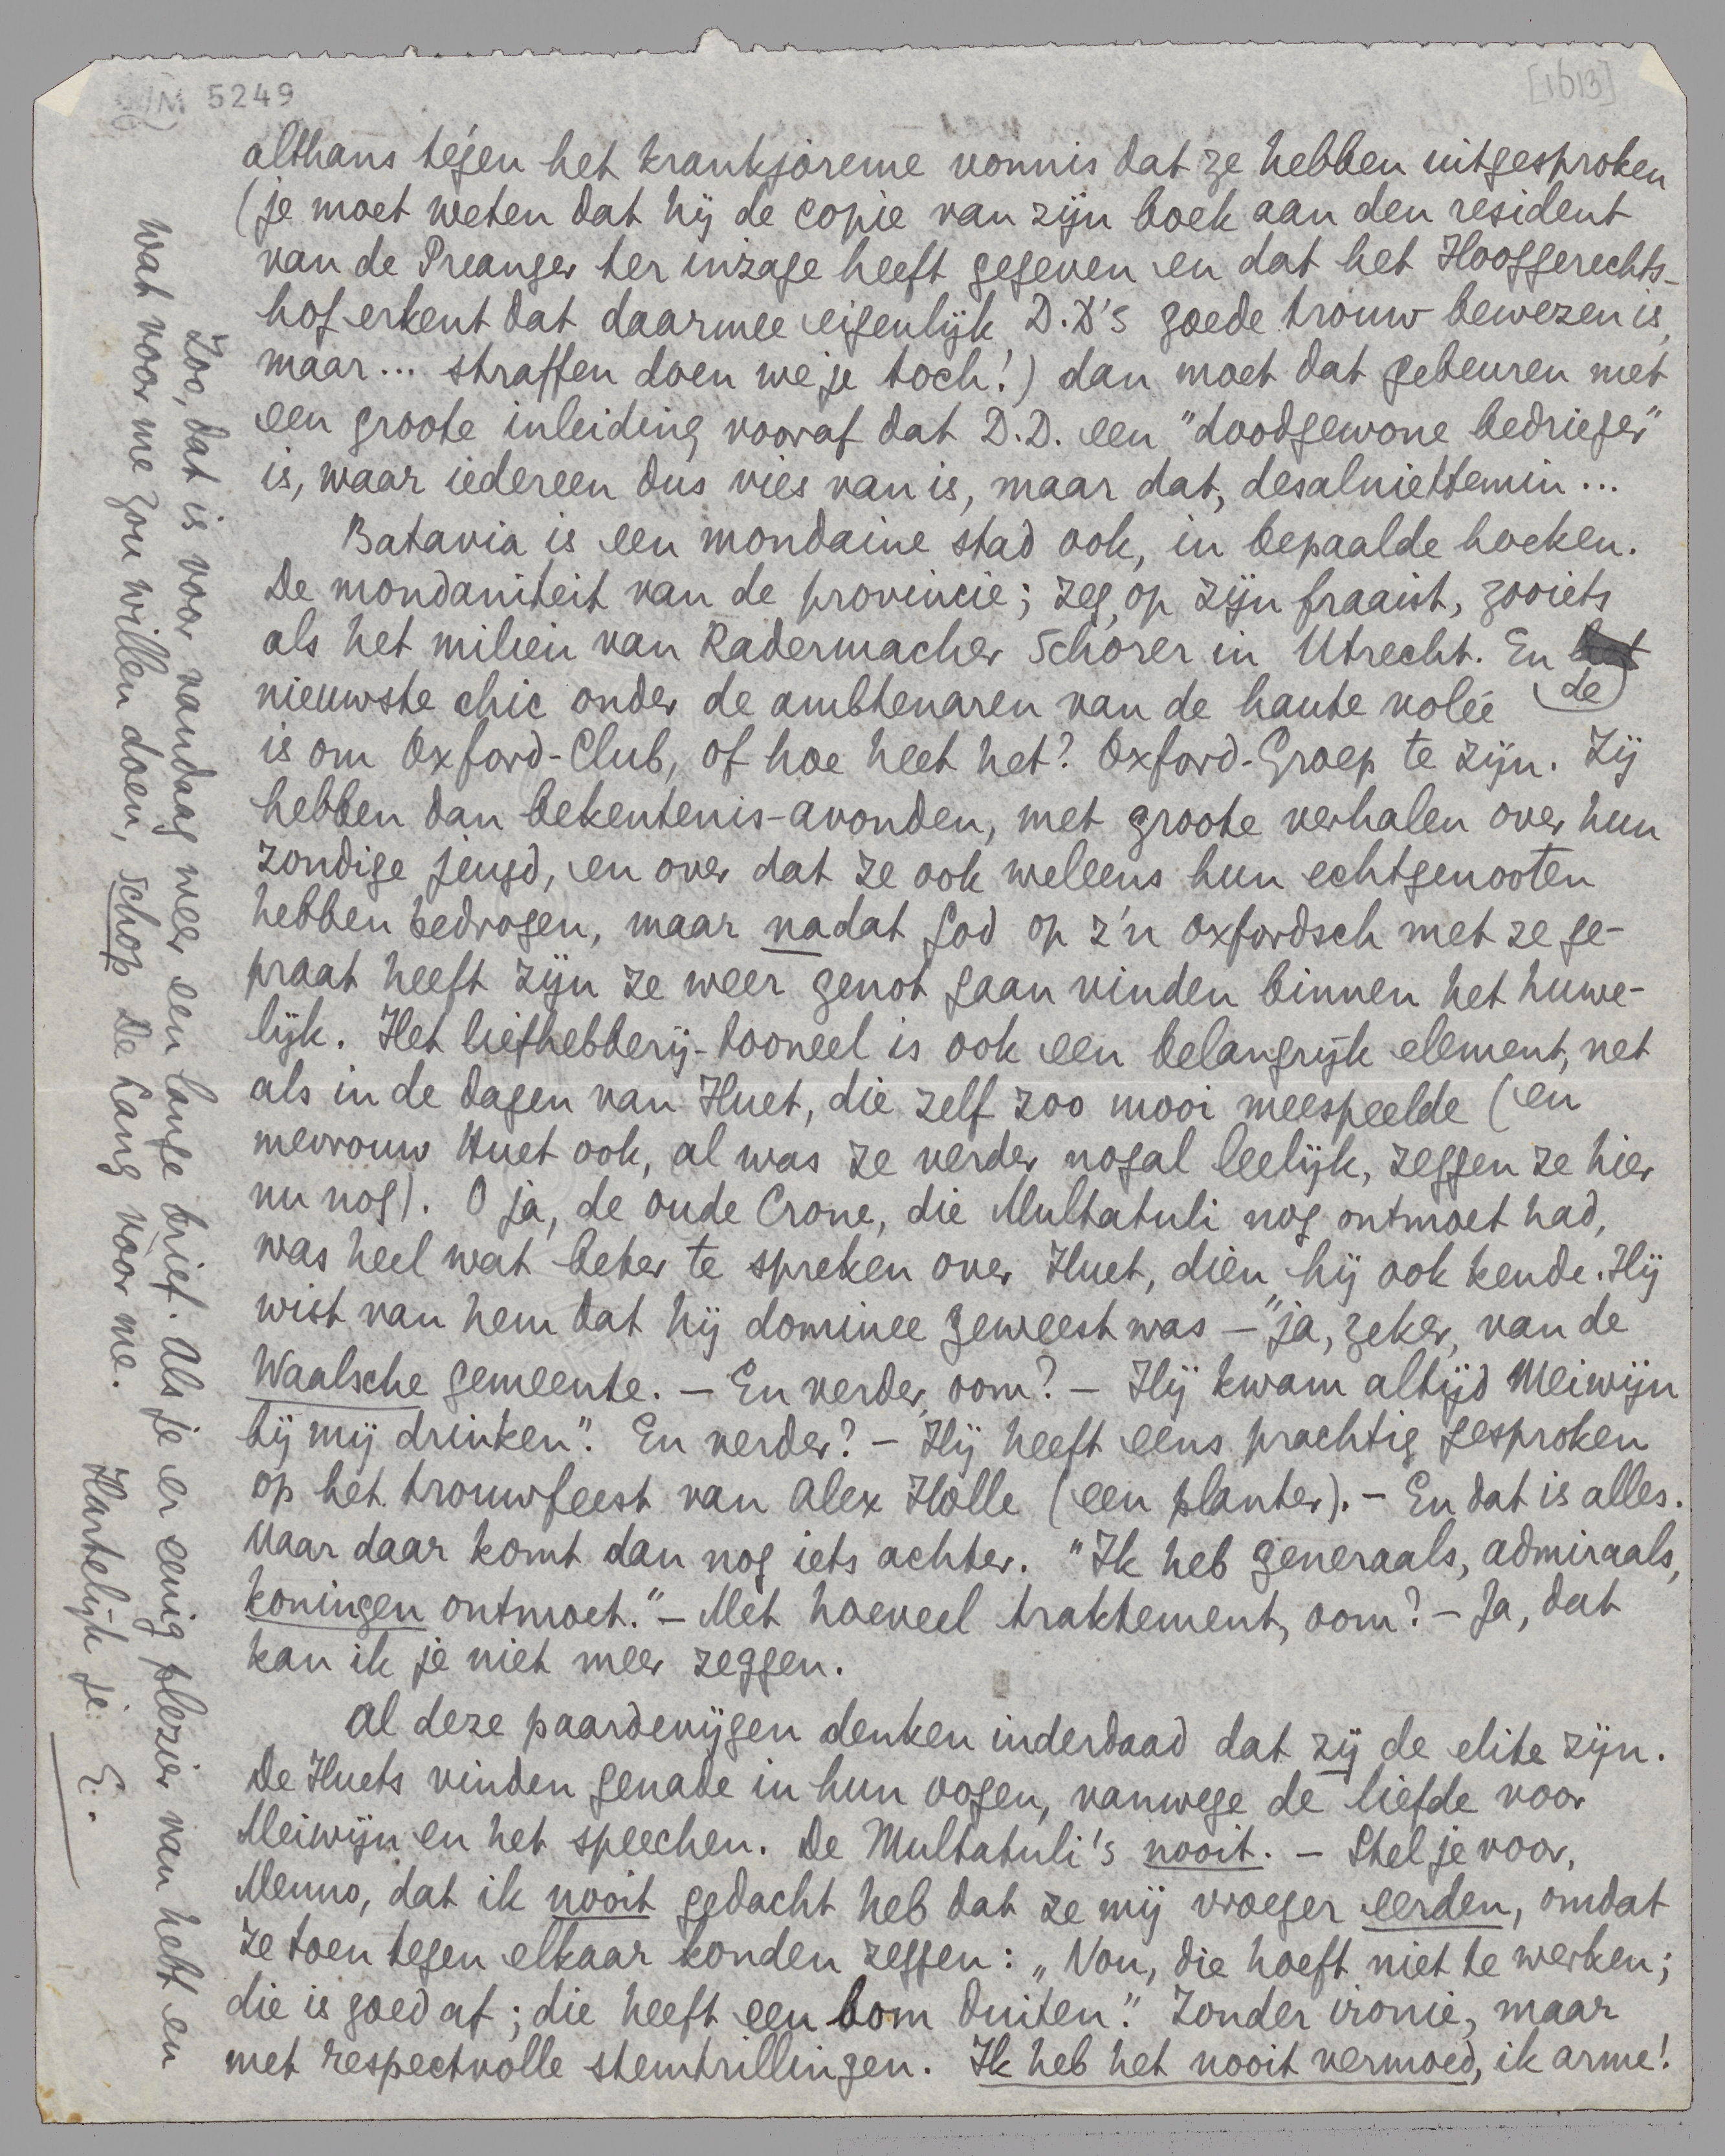 5249
[1613]
althans tégen het krankjoreme vonnis dat ze hebben uitgesproken
(je moet weten dat hij de copie van zijn boek aan den resident
van de Preanger ter inzage heeft gegeven en dat het Hooggerechts-
hof erkent dat daarmee eigenlijk D.D's goede trouw bewezen is,
maar... straffen doen we je toch!) dan moet dat gebeuren met
een groote inleiding vooraf dat D.D. een "doodgewone bedrieger"
is, waar iedereen dus vies van is, maar dat, desalniettemin...
Batavia is een mondaine stad ook, in bepaalde hoeken.
De mondaniteit van de provincie; zeg, op zijn fraaist, zooiets
als het milieu van Radermacher Schorer in Utrecht. En de
nieuwste chic onder de ambtenaren van de haute volée
is om Oxford-Club, of hoe heet het? Oxford-Groep te zijn. Zij
hebben dan bekentenis-avonden, met groote verhalen over hun
zondige jeugd, en over dat ze ook weleens hun echtgenooten
hebben bedrogen, maar nadat God op z'n Oxfordsch met ze ge-
praat heeft zijn ze weer genot gaan vinden binnen het huwe-
lijk. Het liefhebberij-tooneel is ook een belangrijk element, net
als in de dagen van Huet, die zelf zoo mooi meespeelde (en
mevrouw Huet ook, al was ze verder nogal leelijk, zeggen ze hier
nu nog). O ja, de oude Crone, die Multatuli nog ontmoet had,
was heel wat beter te spreken over Huet, dien hij ook kende. Hij
wist van hem dat hij dominee geweest was – "ja, zeker, van de
Waalsche gemeente. – En verder, oom? – Hij kwam altijd Meiwijn
bij mij drinken". En verder? – Hij heeft eens prachtig gesproken
op het trouwfeest van Alex Holle (een planter). – En dat is alles.
Maar daar komt dan nog iets achter. "Ik heb generaals, admiraals,
koningen ontmoet." – Met hoeveel traktement, oom? – Ja, dat
kan ik je niet meer zeggen.
Al deze paardevijgen denken inderdaad dat zij de elite zijn.
De Huets vinden genade in hun oogen, vanwege de liefde voor
Meiwijn en het speechen. De Multatuli's nooit. – Stel je voor,
Menno, dat ik nooit gedacht heb dat ze mij vroeger eerden, omdat
ze toen tegen elkaar konden zeggen: „Nou, die hoeft niet te werken;
die is goed af; die heeft een bom duiten". Zonder ironie, maar
met respectvolle stemtrillingen. Ik heb het nooit vermoed, ik arme!
Zoo, dat is voor vandaag weer een lange brief. Als je er eenig plezier van hebt en
wat voor me zou willen doen, schop De Lang voor me.
Hartelijk je E.